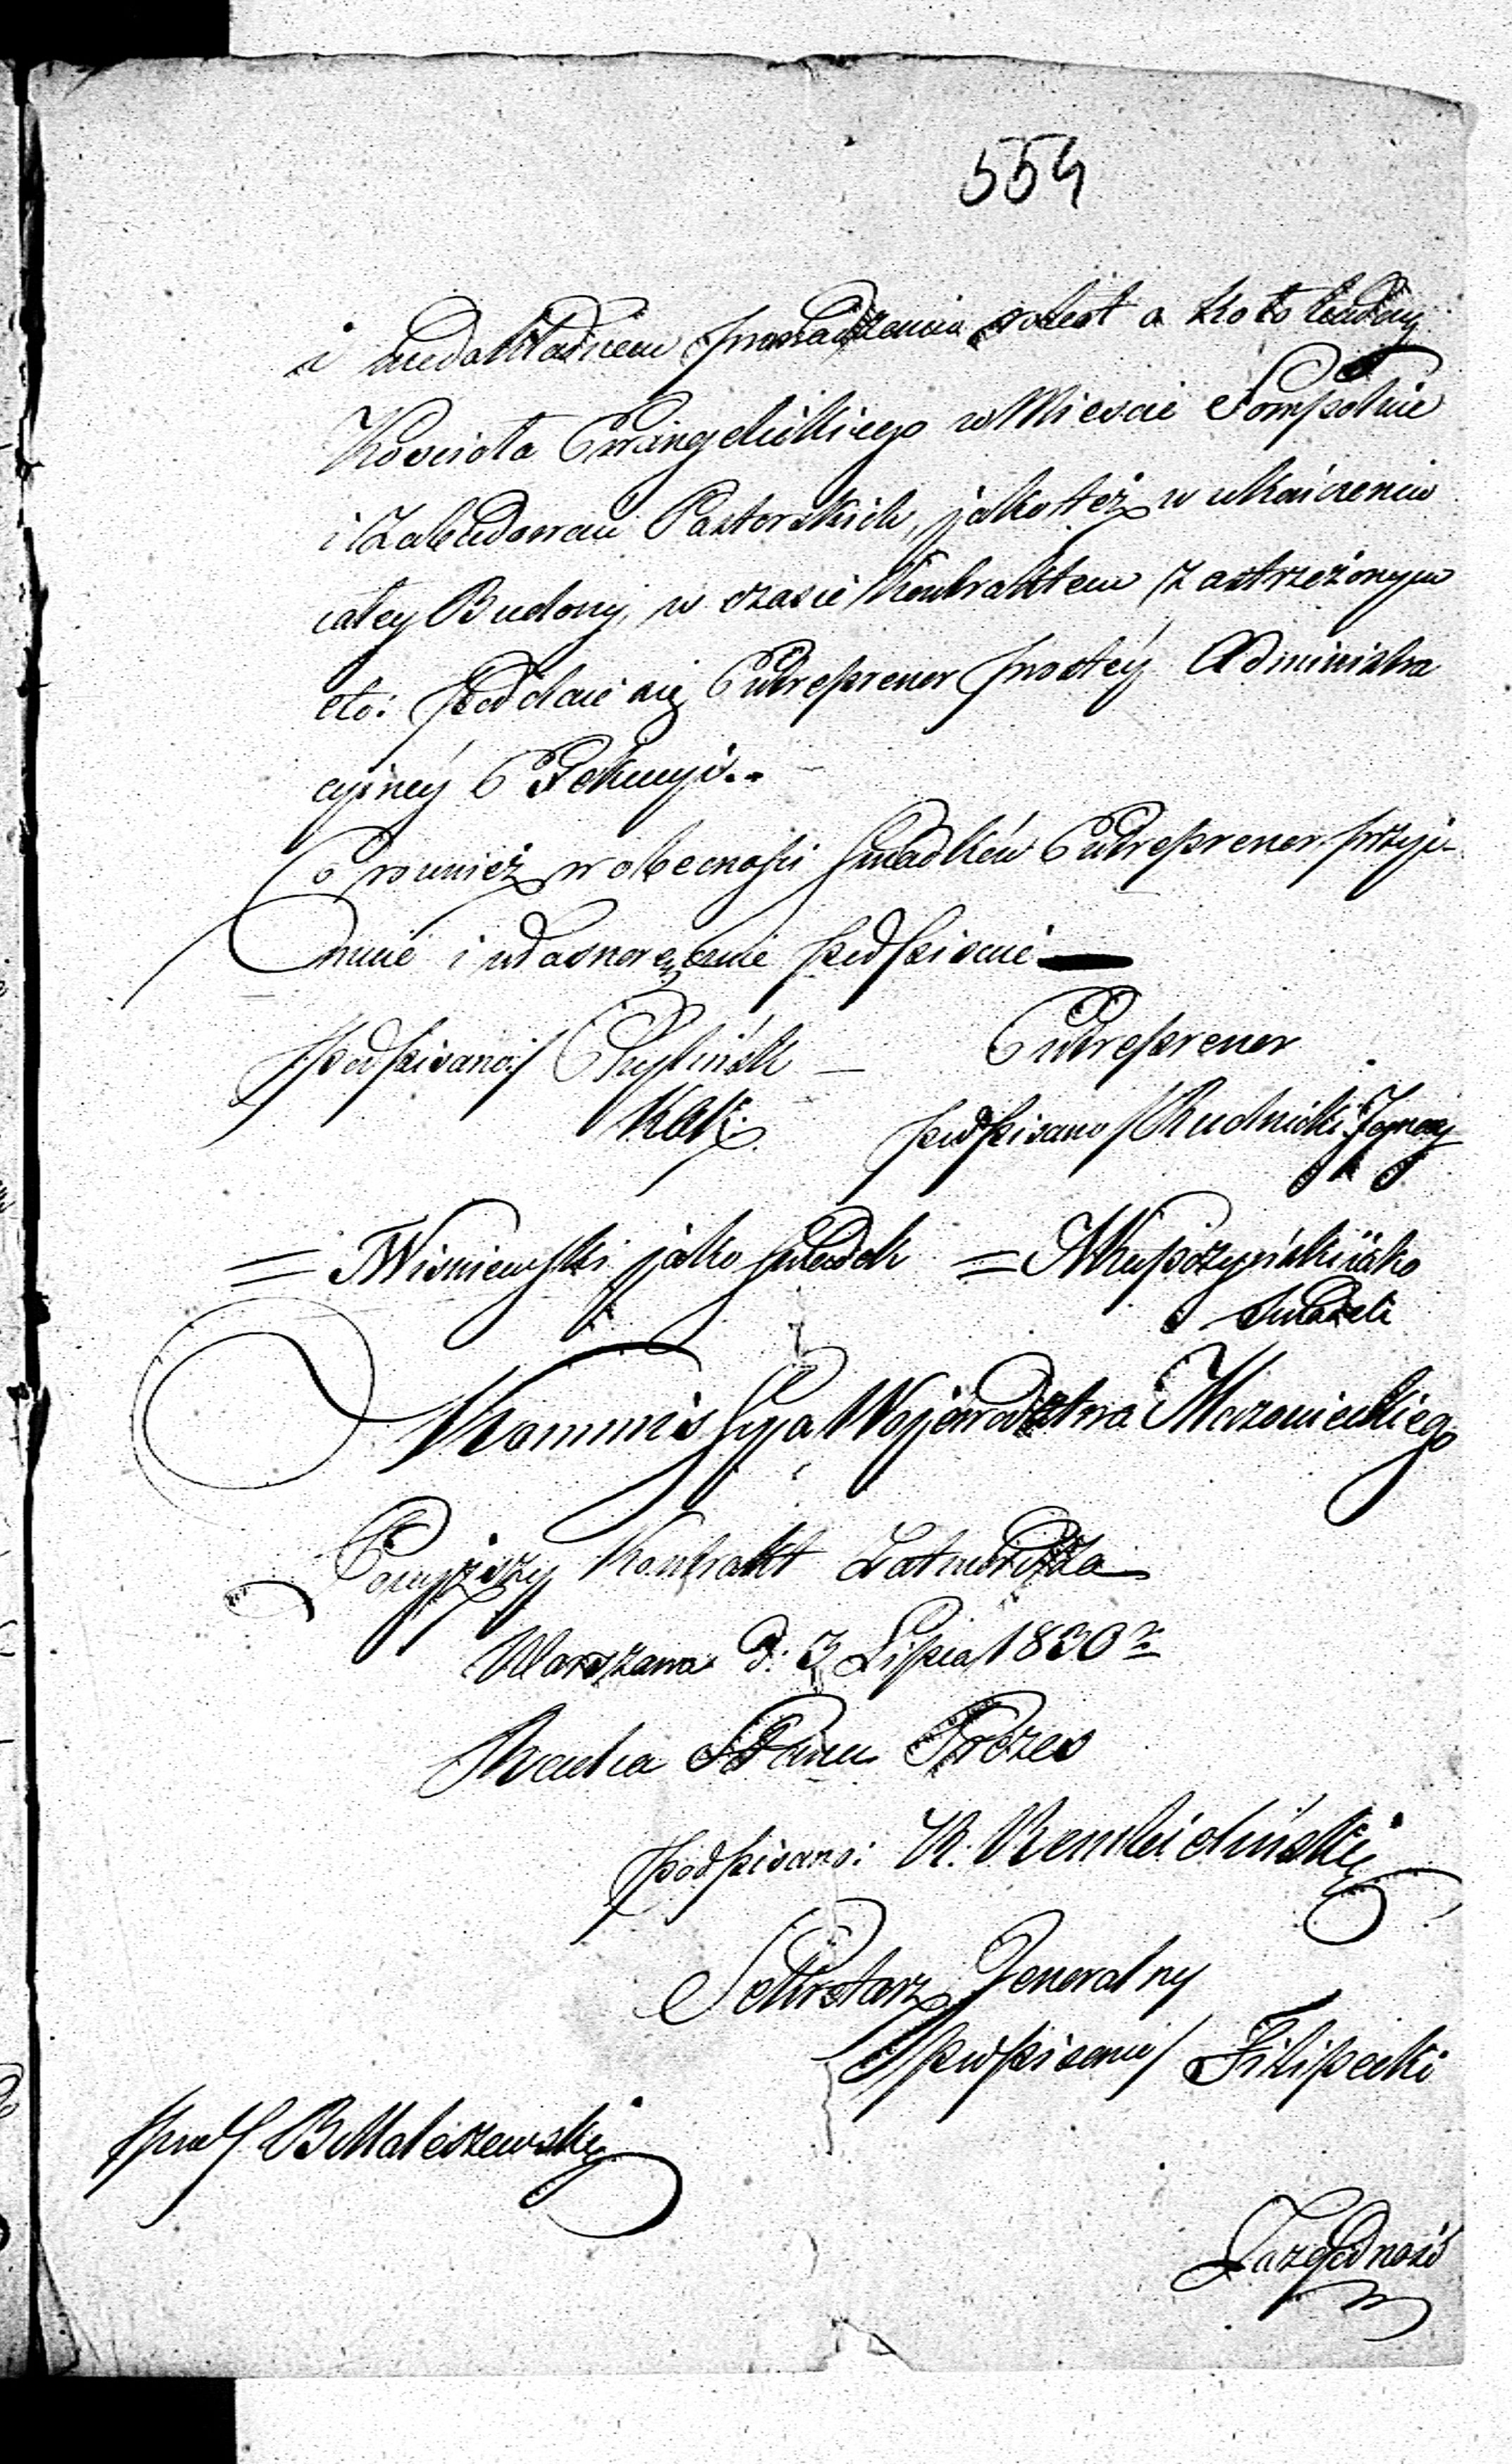 554
i niedokładnem prowadzeniu robot a koło budowy
Kościoła Ewangelickiego w Mieście Sompolnie
i Zabudowań Pastorskich, jako też w ukończeniu
całey Budowy, w czasie Kontraktem zastrzeżonym
etc: poddaie się Entreprener prostéy Administra
cyinéy Exekucyi..
Co rownież w obecności Swiadków Entreprener przyi-
muie i własnoręcznie podpisuie —
/podpisano/ —
Entreprener
podpisano/ Rudnicki Ignacy
= Wisniewski jako Swiadek = jako
Swiadek
Kommissya Województwa Mazowieckiego
Powyższy Kontrakt Zatwierdza
Warszawa d: 3 Lipca 1830 r
Radca Stanu Prezes
podpisano: R. Rembieliński
Sekretarz Jeneralny
/podpisano/ Filipecki
B Maleszewski
Za zgodność